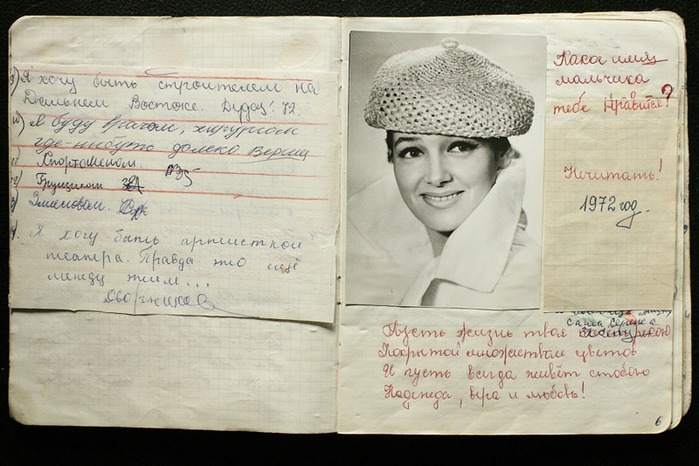 9) Я хочу быть строителем на
Дальнем Востоке. 72.
10) Я буду врачом, хирургом
где-нибуть далеко Верина
11 Спортсменом.
12) Грузчикам
3) Змеёловом.
4. Я хочу бать артисткой
театра. Правда это ещё
между тем...
Какое имя
мальчика
тебе нравится?
Нечитать!
1972 год.
Саша Серёжа
Пусть жизнь твоя
Покрытой множеством цветов
И пусть всегда живёт с тобою
Надежда, вера и любовь!
6